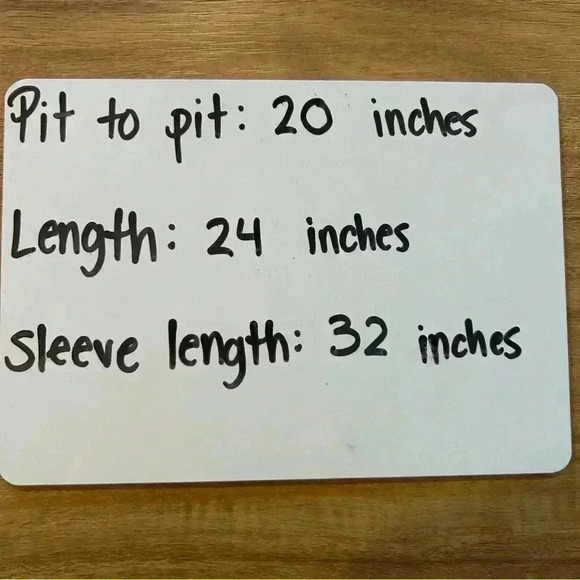 Pit to pit: 20 inches
Length: 24 inches
Sleeve length: 32 inches